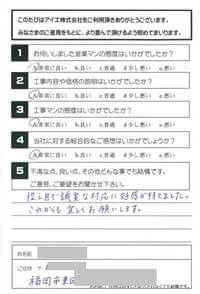 このたびはアイエ株式会社をご利用頂きありがとうございます。
みなさまのご意見をもとに、より喜んで頂けるよう努めてまいります。
1 お伺いしました営業マンの態度はいかがでしたか？
a.非常に良い b.良い c.普通 d.少し悪い e.悪い
2 工事内容や価格の説明はいかがでしたか？
a.非常に良い b.良い c.普通 d.少し悪い e.悪い
3 工事マンの態度はいかがでしたか？
a.非常に良い b.良い c.普通 d.少し悪い e.悪い
4 当社に対する総合的なご感想はいかがでしょうか？
a.非常に良い b.良い c.普通 d.少し悪い e.悪い
5 不満な点、良い点、その他どんな事でも結構です。
ご意見、ご要望をお聞かせ下さい。
控え目で誠実な対応に好感が持てました。
これからも宜しくお願いします。
お名前
ご住所 〒
でも結構です。
福岡市東区